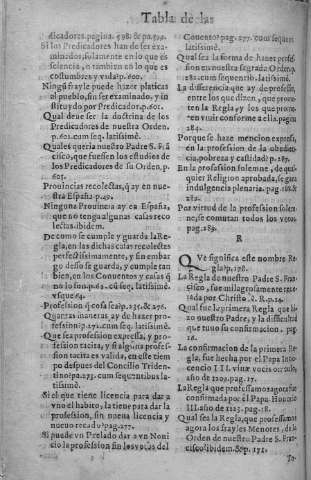 Tabla de las
dicadores.pagina. 598. & pa.599.
Si los Predicadores han de ser exa
minados, solamente en lo que es
sciencia, o tambien en lo que es
costumbres y vida? p. 600.
Ningũ frayle puede hazer platicas
al pueblo, sin ser examinado, y in
stituydo por Predicador. p. 601.
Qual deue ser la doctrina de los
Predicadores de nuestra Orden.
p. 601. cum seq. latissimè.
Quales queria nuestro Padre S. Frã
cisco, que fuesen los estudios de
los Predicadores de su Orden, p.
605.
Prouincias recolectas, q̃ ay en nue
stra España? p. 49.
Ninguna Prouincia ay en España,
que no tenga algunas casas reco
lectas. ibidem.
De como se cumple y guarda la Re
gla, en las dichas casas recolectas
perfectissimamente, y sin embar
go desso se guarda, y cumple tan
bien, en los Conuentos y casas q̃
no lo son. p. 62. cũ seq. latissimè.
vsque 64.
Profession q̃ cosa sea? p. 235. & 276.
Quantas maneras ay de hazer pro-
fession? p. 271. cum seq. latissimè.
Que sea profession expressa, y pro-
fession tacita, y si alguna profes-
sion tacita es valida, en este tiem
po despues del Concilio Triden-
tino? pa. 273. cum sequentibus la-
tissimè.
Si el que tiene licencia para dar a
vno el habito, la tiene para dar la
profession, sin nueua licencia y
nuevo recado? pag. 277.
Si puede vn Prelado dar a vn Noui
cio la profession sin los votos del
Conuento? pag. 277. cum sequen
latissimè.
Qual sea la forma de hazer profes-
sion en nuestra sagrada Orden. p.
282. cum sequentib. latissimè.
La differencia que ay de profess.
entre los que dizen, que prome-
ten la Regla, y los que prome-
ten viuir conforme a ella. pagin.
284.
Porque se haze mencion express.
en la profession de la obedien-
cia, pobreza y castidad? p. 285.
En la profession solemne, de qual-
quier Religion aprobada, se gana
indulgencia plenaria. pag. 168. &
282.
Por virtud de la profession solem-
ne, se comutan todos los votos.
pag. 289.
R
QVe significa este nombre Re-
gla? p. 178.
La Regla de nuestro Padre S. Frã-
cisco, fue milagrosamente reue-
lada por Christo. N. R. p. 14.
Qual fue la primera Regla que hi-
zo nuestro Padre, y la difficultad
que tuuo su confirmacion. pag.
16.
La confirmacion de la primera Re-
gla, fue hecha por el Papa Inno-
cencio III. viuæ vocis oraculo,
año de 1209. pag. 17.
La Regla que professamos agora fue
confirmada por el Papa. Honorio
III. año de 1223. pag. 18.
Qual sea la Regla, que professamos
agora los frayles Menores, de la
Orden de nuestro Padre S. Fran-
cisco? ibidem. & p. 171.